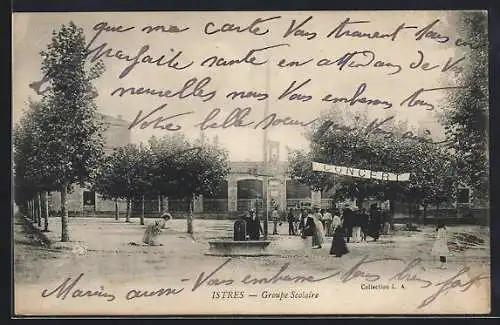 que ma carte vs trouvent tous en
parfaite sante en attendant de
nouvelles nous vs embrassons tous
Votre belle soeur
CONCERT
Marius aussi vs embrasse bien fort
ISTRES — Groupe Scolaire
Collection L. A.